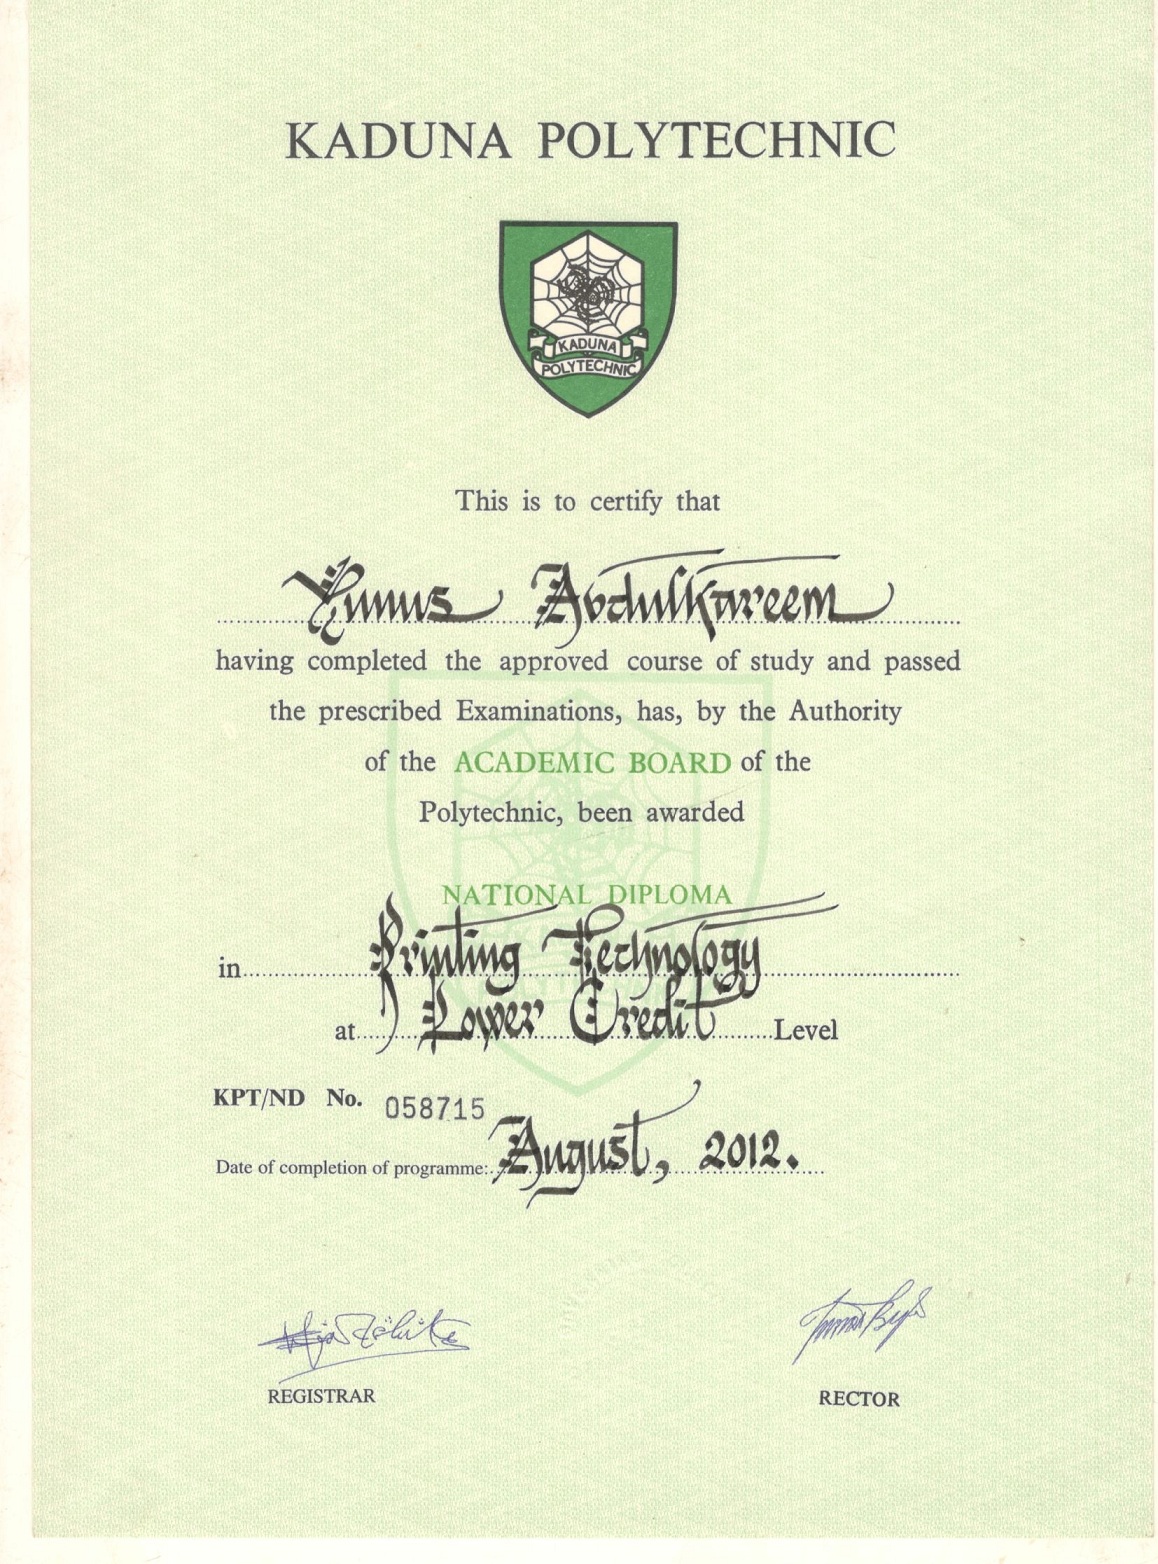 KADUNA POLYTECHNIC
KADUNA
POLYTECHNIC
This is to certify that
Yunus Abdulkareem
having completed the approved course of study and passed
the prescribed Examinations, has, by the Authority
of the ACADEMIC BOARD of the
Polytechnic, been awarded
NATIONAL DIPLOMA
in Printing Technology
at Lower Credit Level
KPT/ND No. 058715
Date of completion of programme: August, 2012.
REGISTRAR
RECTOR